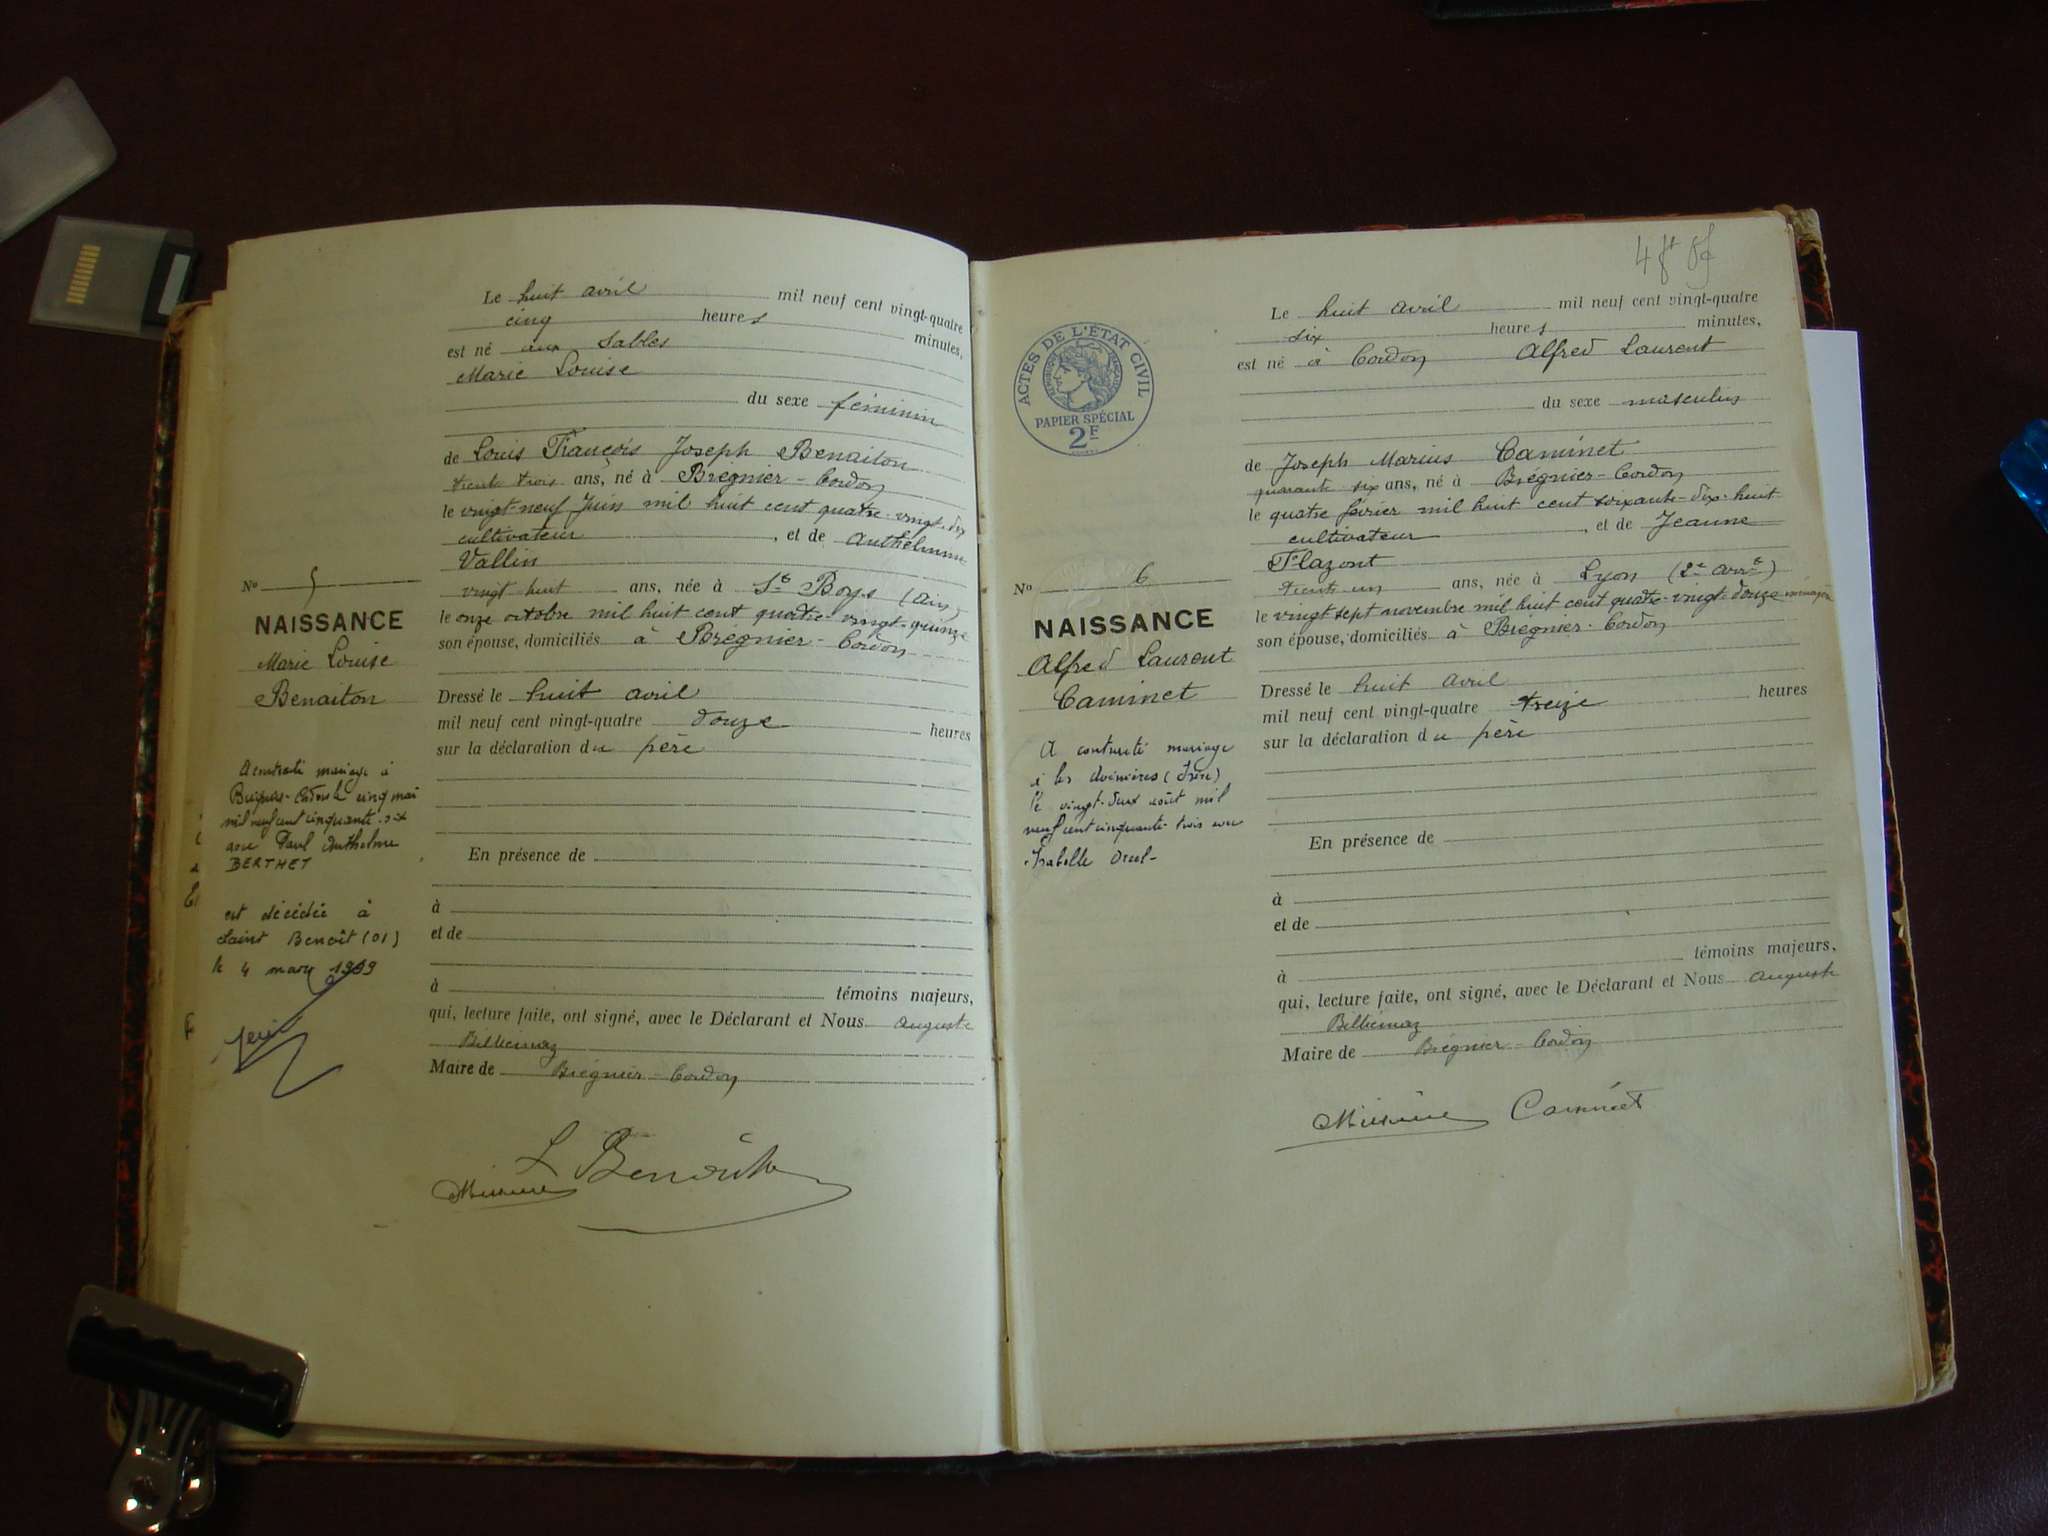 Le huit avril mil neuf cent vingt-quatre
cinq heures minutes,
est né aux Sables
Marie Louise
du sexe féminin
de Louis François Joseph Benaiton
trente trois ans, né à Brégnier-Cordon
le vingt-neuf Juin mil huit cent quatre-vingt-dix
cultivateur, et de Anthelmine
Vallin
vingt huit ans, née à St Boys (Ain)
le onze octobre mil huit cent quatre-vingt-quinze
son épouse, domiciliés à Brégnier-Cordon
Dressé le huit avril
mil neuf cent vingt-quatre douze heures
sur la déclaration du père
En présence de
à
et de
à témoins majeurs,
qui, lecture faite, ont signé, avec le Déclarant et Nous Auguste
Billiemaz
Maire de Brégnier-Cordon
L Benaiton
No 5
NAISSANCE
Marie Louise
Benaiton
A contracté mariage à
Brégnier-Cordon le cinq mai
mil neuf cent cinquante-six
avec Paul Anthelme
BERTHET
est décédée à
Saint Benoît (01)
le 4 mars
4 ft
ACTES DE L'ÉTAT CIVIL
RÉPUBLIQUE FRANÇAISE
PAPIER SPÉCIAL
2F
Le huit avril mil neuf cent vingt-quatre
six heures minutes,
est né à Cordon Alfred Laurent
du sexe masculin
de Joseph Marius Caminet
quarante six ans, né à Brégnier-Cordon
le quatre février mil huit cent soixante-dix-huit
cultivateur, et de Jeanne
Flazont
trente un ans, née à Lyon (2e arrt)
le vingt sept novembre mil huit cent quatre-vingt-douze ménagère
son épouse, domiciliés à Brégnier-Cordon
Dressé le huit avril
mil neuf cent vingt-quatre treize heures
sur la déclaration du père
En présence de
à
et de
à témoins majeurs,
qui, lecture faite, ont signé, avec le Déclarant et Nous Auguste
Billiemaz
Maire de Brégnier-Cordon
Caminet
No 6
NAISSANCE
Alfred Laurent
Caminet
A contracté mariage
à les Avenières (Isère)
le vingt-deux août mil
neuf cent cinquante-trois avec
Isabelle